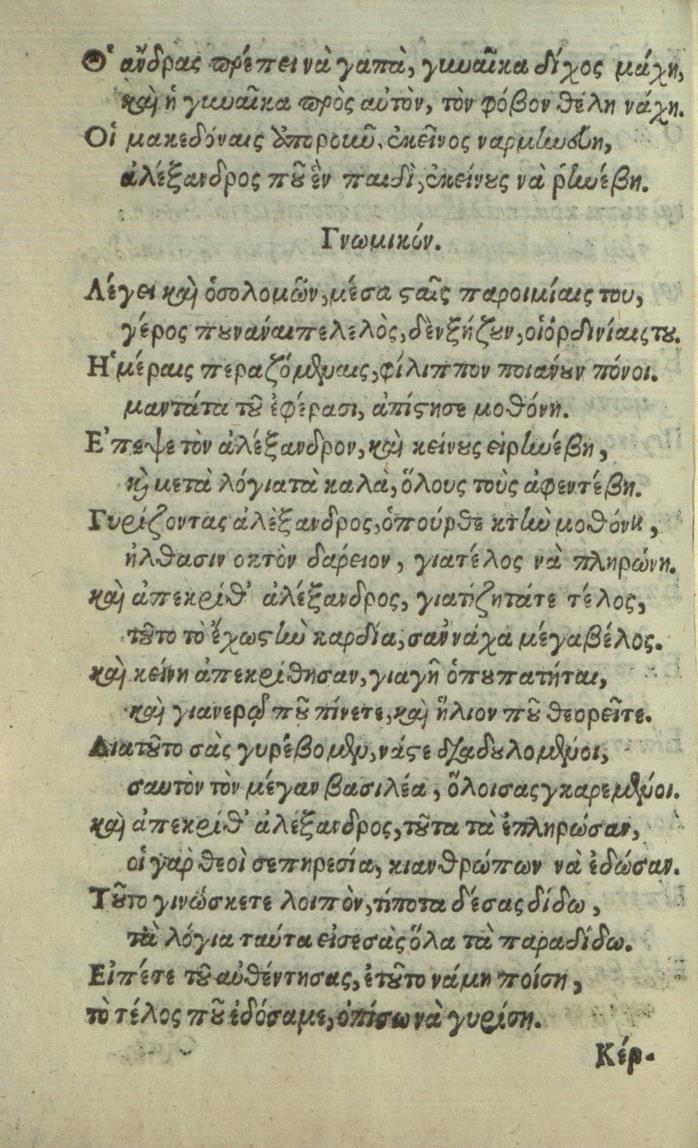 Ὁ ἄνδρας πρέπει νὰ γαπὰ, γυναῖκα δίχος μάχη,
καὶ ἡ γυναῖκα πρὸς αὐτὸν, τὸν φόβον θέλη νάχη.
Οἱ μακεδόναις ἀποροιοῦ, ἐκεῖνος ναρμηνεύη,
ἀλέξανδρος ποῦ ἐν παιδὶ, ἐκείνους νὰ ῥηνεύβη.
Γνωμικόν.
Λέγει καὶ ὁσολομῶν, μέσα σταῖς παροιμίαις του,
γέρος πουνάναιπελελὸς, δὲνξήζουν, οἱὀρδινίαιςτου.
Ἡ μέραις περαζόμεναις, φίλιππον ποιανόυν πόνοι.
μαντάτα τοῦ ἐφέρασι, ἀπίστησε μοθόνη.
Ἔπεψε τὸν ἀλέξανδρον, καὶ κείνους εἰρηνέβη,
καὶ μετὰ λόγιατὰ καλὰ, ὅλους τοὺς ἀφεντέβη.
Γυρίζοντας ἀλέξανδρος, ὁπούρθε κτὴν μοθόνη,
ἠλθασιν οκτὸν δαρειον, γιατέλος νὰ πληρώνη.
καὶ ἀπεκρίθ' ἀλέξανδρος, γιατίζητάτε τέλος,
τοῦτο τὸ ἔχωστὴν καρδία, σαννάχα μέγαβέλος.
καὶ κείνη ἀπεκρίθησαν, γιαγῆ ὁπουπατῆται,
καὶ γιανερὸ ποῦ πίνετε, καὶ ἥλιον ποῦ θεορεῖτε.
Διατοῦτο σὰς γυρέβομεν, νάστε δξαδουλομένοι,
σαυτὸν τὸν μέγαν βασιλέα, ὅλοισας γκαρεμένοι.
καὶ ἀπεκρίθ' ἀλέξανδρος, τοῦτα τὰ ἐπληρώσαν,
οἱ γὰρ θεοὶ σεπηρεσία, κιανθρώπων νὰ ἐδώσαν.
Τοῦτο γινώσκετε λοιπὸν, τίποτα δέσας δίδω,
τὰ λόγια ταύτα εἰσεσὰς ὅλα τὰ παραδίδω.
Εἰπέτε τοῦ αὐθέντησας, ἐτοῦτο νάμη ποίση,
τὸ τέλος ποῦ ἐδόσαμε, ὀπίσω νὰ γυρίση.
Κέρ-